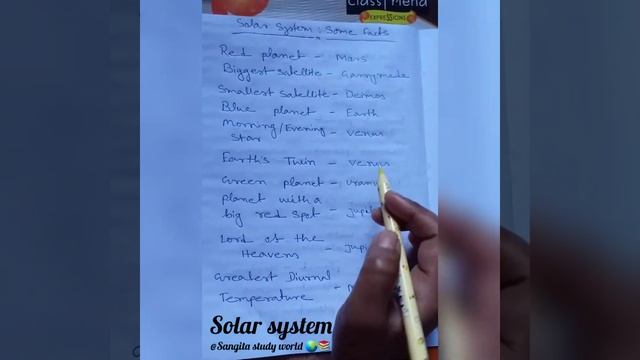 Class Mend
EXPRESSIONS
Solar System : Some Facts
Red planet - Mars
Biggest Satellite - Gannymede
Smallest Satellite - Deimos
Blue planet - Earth
Morning/Evening - Venus
Star
Earth's Twin - Venus
Green planet -
planet with a
big red spot -
Lord of the
Heavens -
Greatest Diurnal
Temperature -
Solar system
@Sangita study world